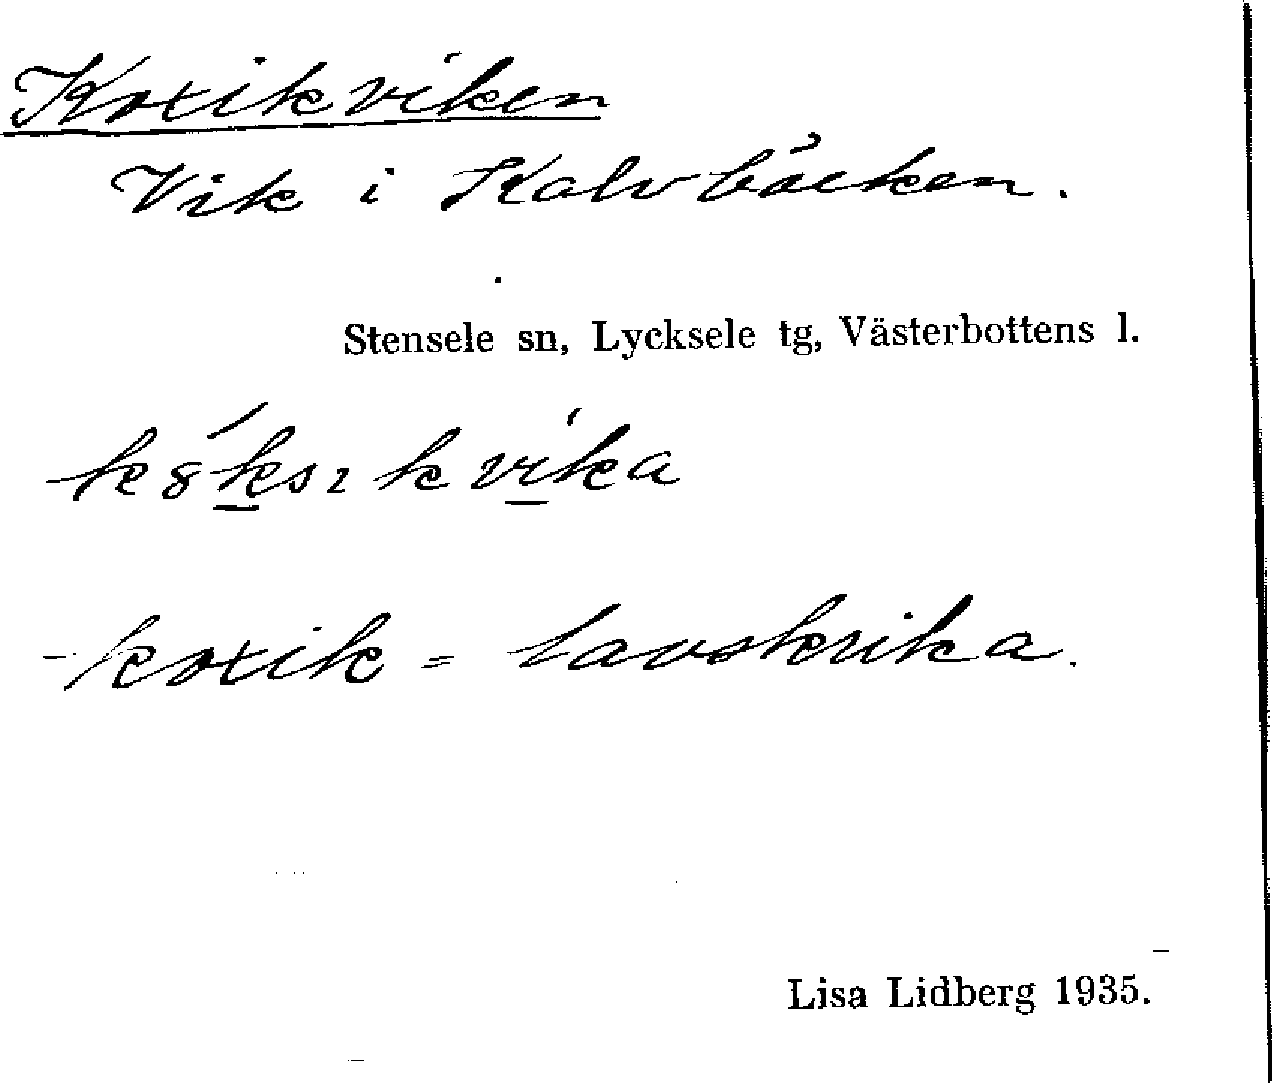 Koxikviken
Vik i Kalvbäcken.
Stensele sn, Lycksele tg, Västerbottens l.
k8́ksıkvika
koxik = lavskrika.
Lisa Lidberg 1935.